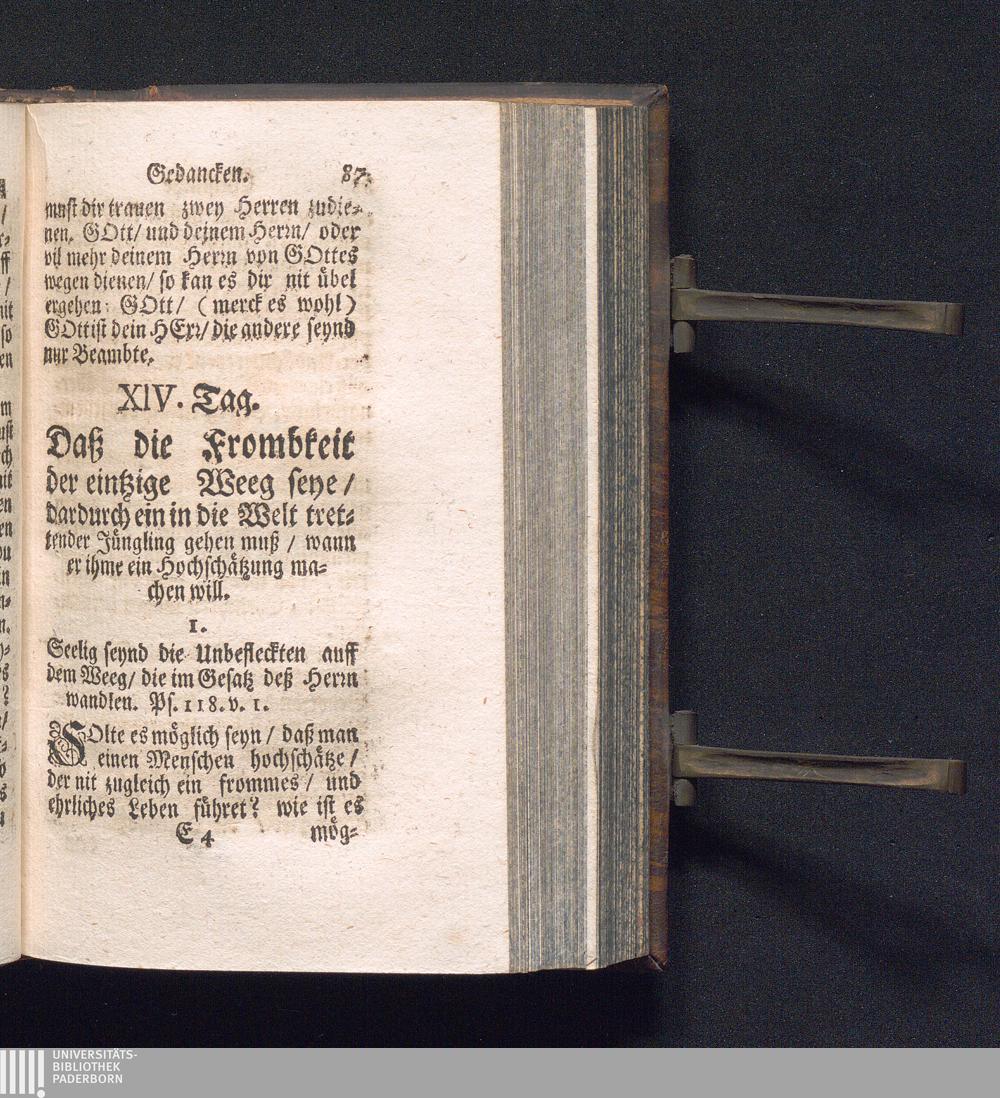 Gedancken. 87.
must dir trauen zwey Herren zudie-
nen. GOtt/ und deinem Herrn/ oder
vil mehr deinem Herrn von GOttes
wegen dienen/ so kan es dir nit übel
ergehen: GOtt/ (merck es wohl)
GOtt ist dein HErr/ die andere seynd
nur Beambte.
XIV. Tag.
Daß die Frombkeit
der eintzige Weeg seye/
dardurch ein in die Welt tret-
tender Jüngling gehen muß/ wann
er ihme ein Hochschätzung ma-
chen will.
1.
Seelig seynd die Unbefleckten auff
dem Weeg/ die im Gesatz deß Herrn
wandlen. Ps. 118. v. 1.
SOlte es möglich seyn/ daß man
einen Menschen hochschätze/
der nit zugleich ein frommes/ und
ehrliches Leben führet? wie ist es
E 4 mög-
UNIVERSITÄTS-
BIBLIOTHEK
PADERBORN